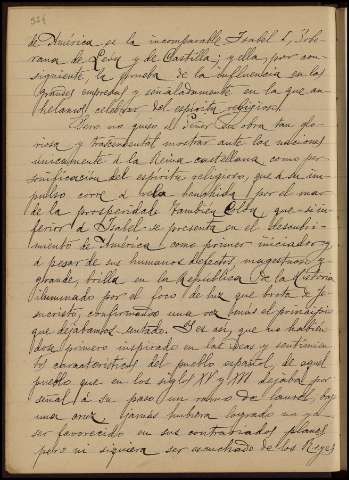 de América es la incomparable Isabel I, Sobe-
rana de León y de Castilla; y ella, por con-
siguiente, la prueba de la influencia en las
grandes empresas y señaladamente en la que an-
helamos celebrar del espíritu religioso.
Pero no quiso el Señor en obra tan glo-
riosa y trascendental mostrar ante las naciones
unicamente a la Reina castellana como per-
sonificación del espíritu religioso, que á su im-
pulso corre á vela henchida por el mar
de la prosperidad. También Colón que si in-
ferior á Isabel se presenta en el descubri-
miento de América como primer iniciador y
á pesar de sus humanos defectos, magestuoso y
grande, brilla en la República de la Historia
iluminado por el foco de luz que brota de Je-
sucristo, confirmando una vez más el principio
que dejábamos sentado. Y es así, que no habién-
dose primero inspirado en las ideas y sentimien-
tos característicos del pueblo español, de aquel
pueblo que en los siglos XV y XVI dejaba por
señal á su paso un ramo de laurel bajo
una cruz, jamás hubiera logrado no ya
ser favorecido en sus contrariados planes,
pero ni siquiera ser escuchado de los Reyes